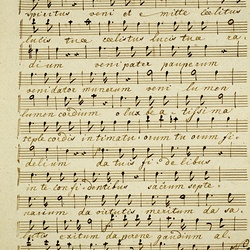 spiritus veni et e mitte caelitus
lucis tuae caelistus lucis tuae ra-
dium veni pater pauperum
veni dator munerum veni lumen
lumen cordium o lux bea tissima
reple cordis intima tu orum tu orum fi-
delium da tuis fi delibus
in te confidentibus sacrum septe-
narium da virtutis meritum da sa-
lutis exitum da perene gaudium al